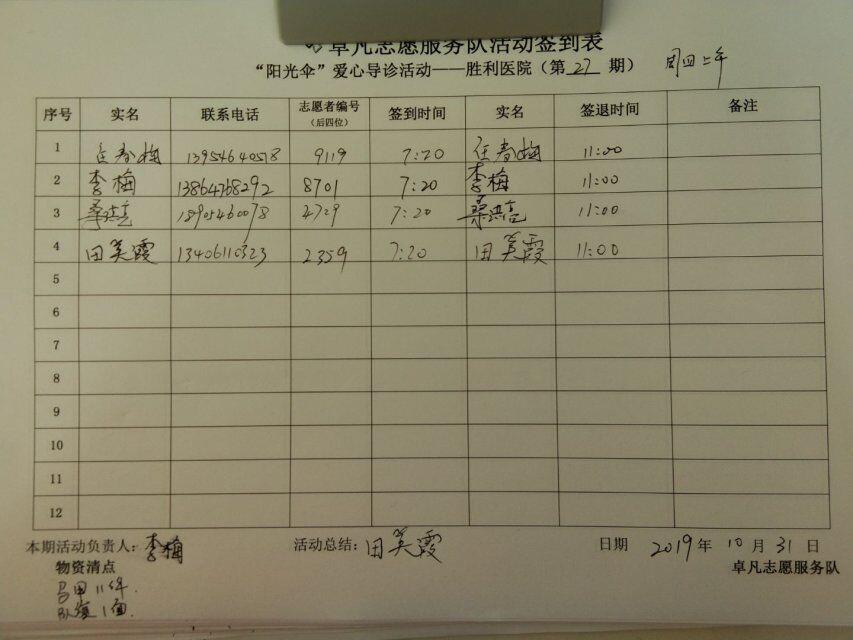 卓凡志愿服务队活动签到表
“阳光伞”爱心导诊活动——胜利医院（第27期） 周四上午
序号 实名 联系电话 志愿者编号（后四位） 签到时间 实名 签退时间 备注
1 任春梅 13954640578 9119 7:20 任春梅 11:00
2 李梅 13864768292 8701 7:20 李梅 11:00
3 桑洪亮 18905460078 2729 7:20 桑洪亮 11:00
4 田美霞 13406110323 2359 7:20 田美霞 11:00
5
6
7
8
9
10
11
12
本期活动负责人：李梅 活动总结：田美霞 日期 2019年10月31日
物资清点 卓凡志愿服务队
马甲11件
队旗1面